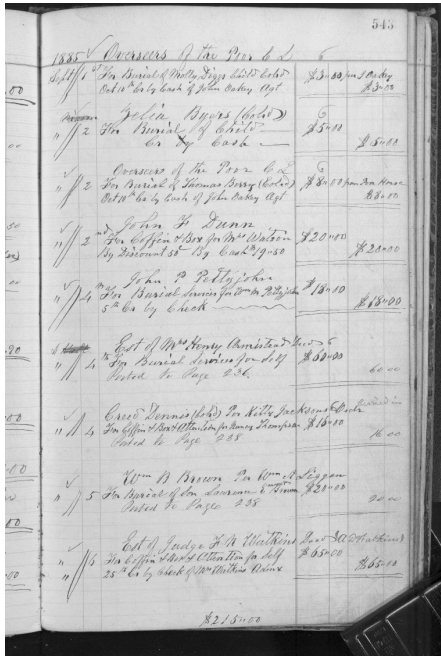 545
1885 Overseers of the Poor C L
Sept 1st For Burial of Molly Diggs Child Cold $3.00 pr J Oakey
Oct 10th Cr by Cash of John Oakey Agt $3.00
Byrs (Cold)
" 2 For Burial of Child $5.00
Cr By Cash $5.00
Overseers of the Poor C L
" 2 For Burial of Thomas Berry (Cold) $8.00 from Poor House
Oct 10th Cr by Cash of John Oakey Agt $8.00
John F Dunn
" 2nd For Coffin & Box for Mrs Watson $20.00
By Discount 50c By Cash 19.50 $20.00
John P Pettyjohn
" 4 For Burial Services for Pettyjohn $18.00
5th Cr by Check $18.00
Est of Mrs Henry Armistead Decd
" 4th For Burial Services for Self $60.00
Posted to Page 236 60.00
Creed Dennis (Cold) Per Kitty Jackson
" 4 For Coffin & Box & Attention for Thompson $16.00
Posted to Page 238 16.00
Wm B Brown Per Wm A Liggan
" 5 For Burial of Son Lawrence Brown $20.00
Posted to Page 238 20.00
Est of Judge F N Watkins Decd
" 5 For Coffin & Box & Attention for Self $65.00
25th Cr by Check of Mrs Watkins $65.00
$215.00